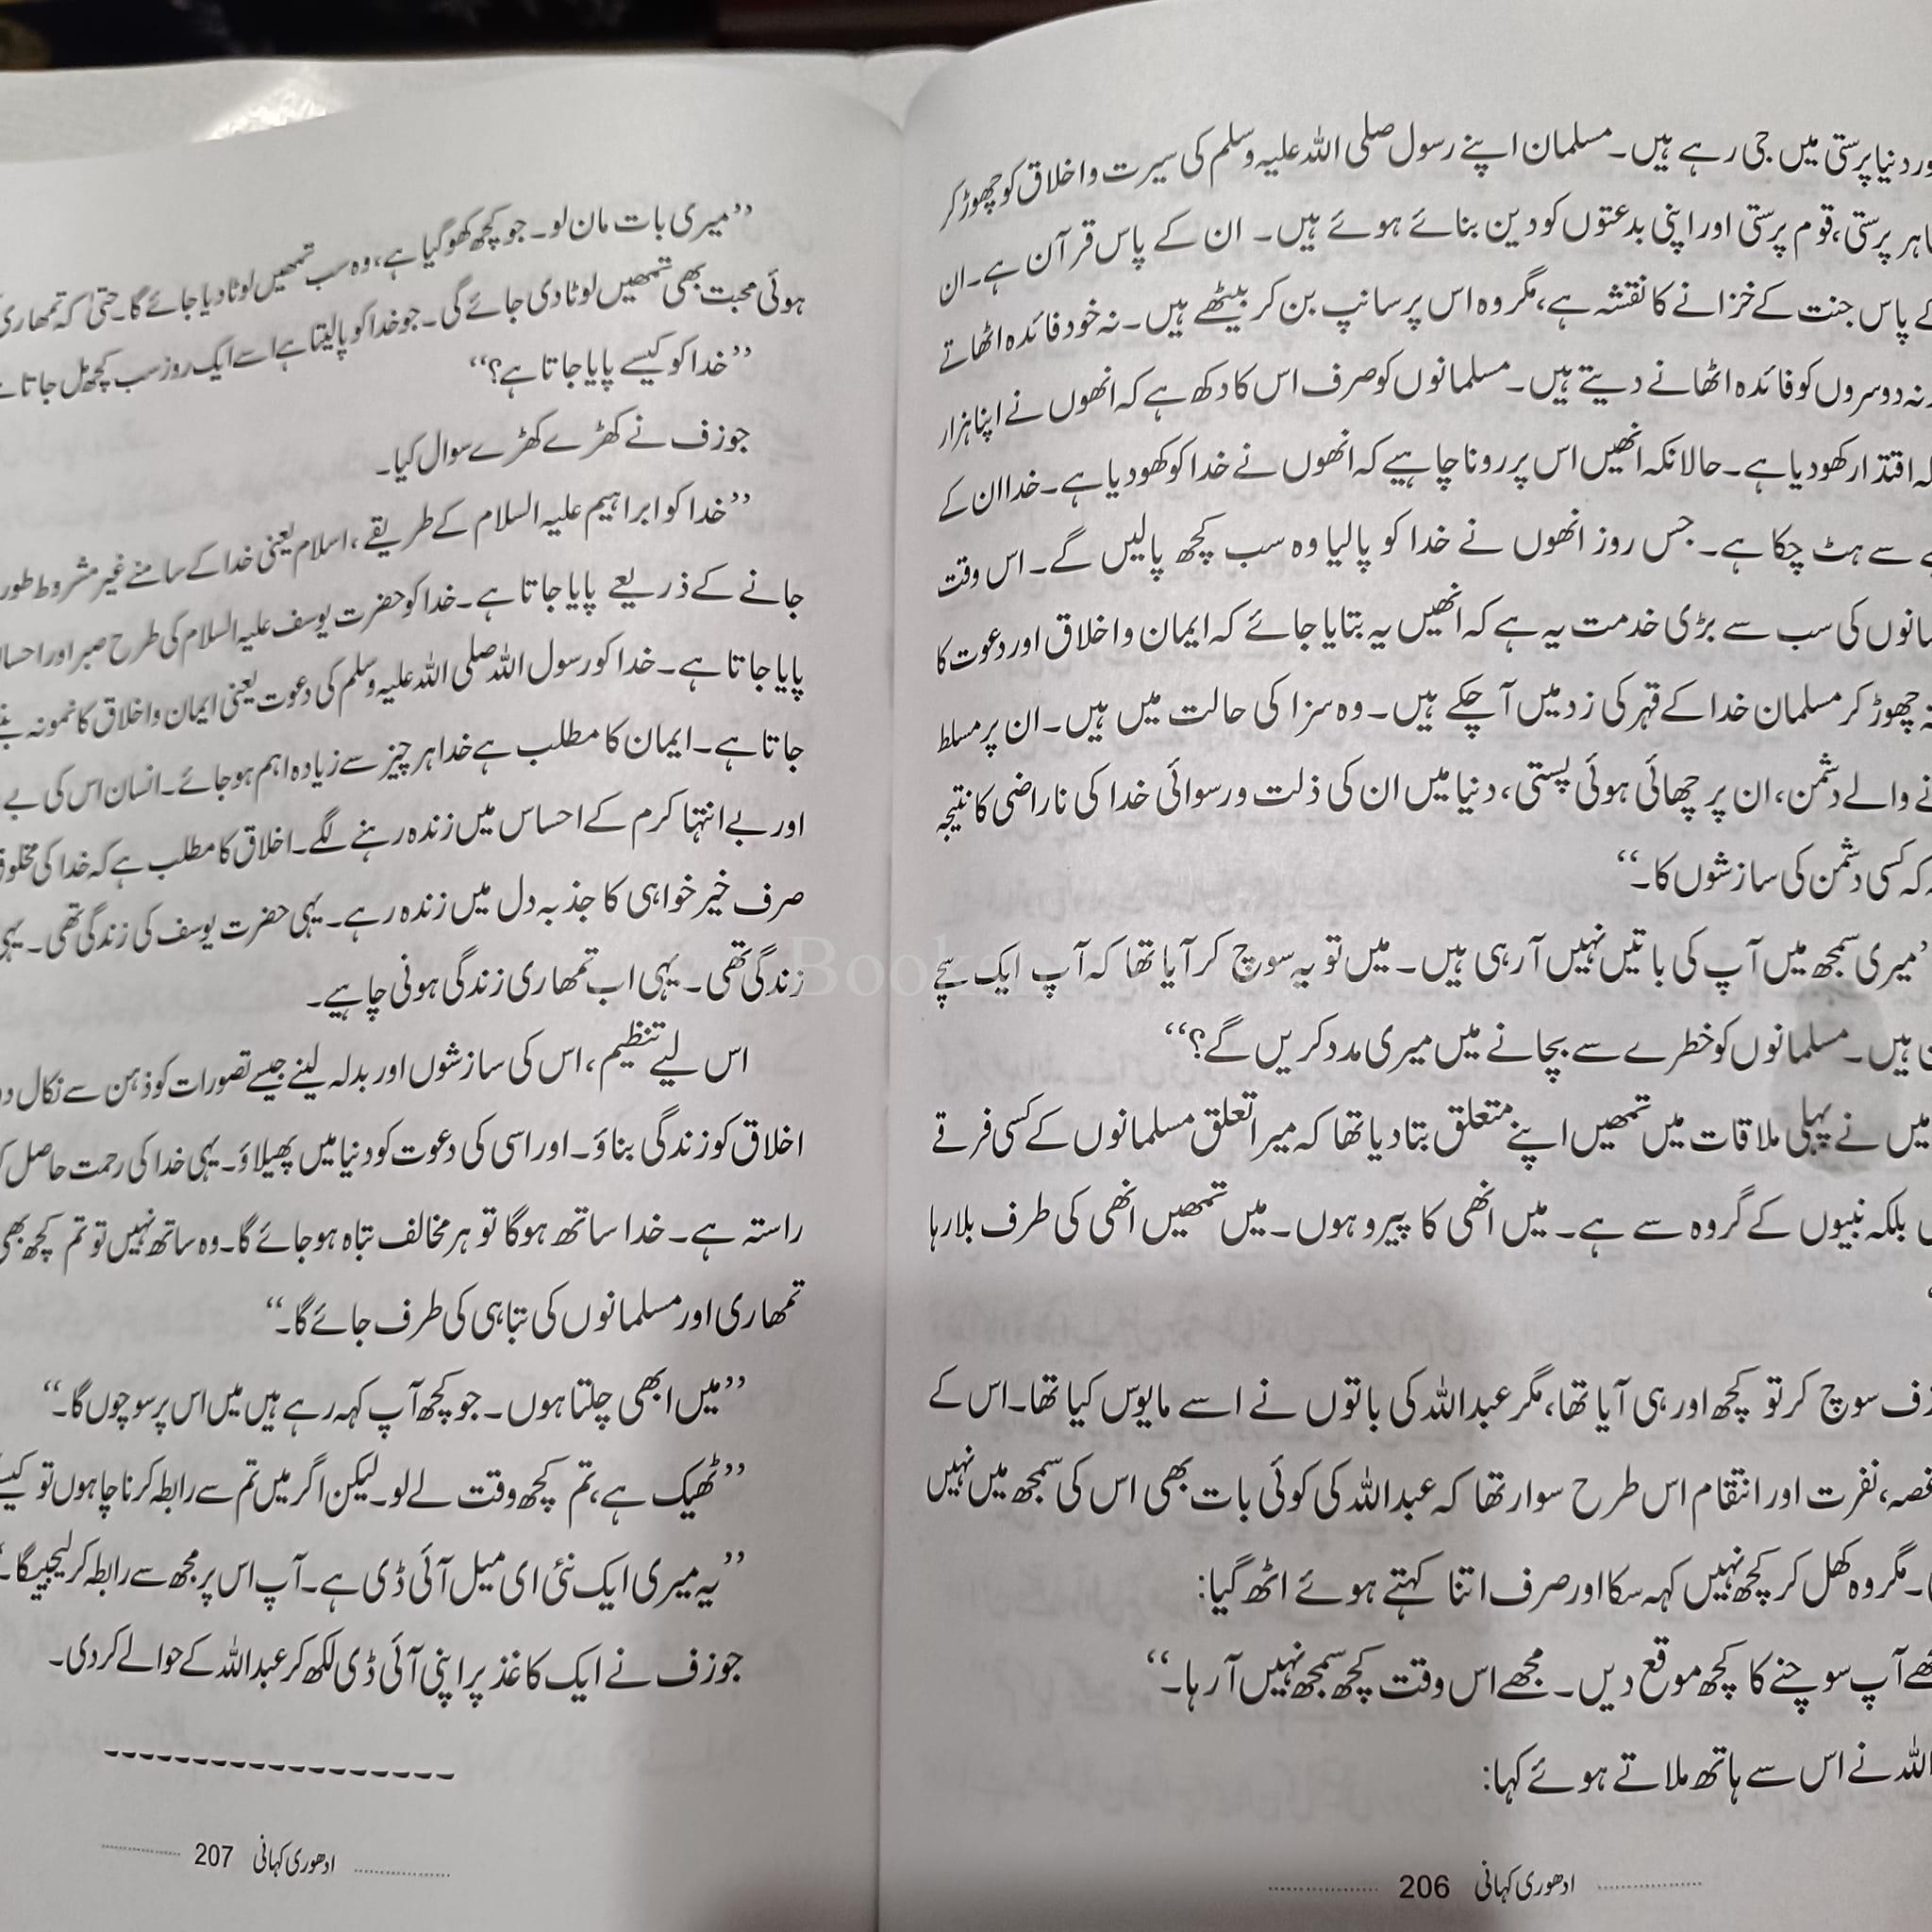 دنیا پرستی میں جی رہے ہیں۔ مسلمان اپنے رسول صلی اللہ علیہ وسلم کی سیرت و اخلاق کو چھوڑ کر
پرستی، قوم پرستی اور اپنی بدعتوں کو دین بنائے ہوئے ہیں۔ ان کے پاس قرآن ہے۔ ان
کے پاس جنت کے خزانے کا نقشہ ہے، مگر وہ اس پر سانپ بن کر بیٹھے ہیں۔ نہ خود فائدہ اٹھاتے
نہ دوسروں کو فائدہ اٹھانے دیتے ہیں۔ مسلمانوں کو صرف اس کا دکھ ہے کہ انھوں نے اپنا ہزار
اقتدار کھو دیا ہے۔ حالانکہ انھیں اس پر رونا چاہیے کہ انھوں نے خدا کو کھو دیا ہے۔ خدا ان کے
سے ہٹ چکا ہے۔ جس روز انھوں نے خدا کو پالیا وہ سب کچھ پالیں گے۔ اس وقت
کی سب سے بڑی خدمت یہ ہے کہ انھیں یہ بتایا جائے کہ ایمان و اخلاق اور دعوت کا
چھوڑ کر مسلمان خدا کے قہر کی زد میں آچکے ہیں۔ وہ سزا کی حالت میں ہیں۔ ان پر مسلط
والے دشمن، ان پر چھائی ہوئی پستی، دنیا میں ان کی ذلت و رسوائی خدا کی ناراضی کا نتیجہ
کہ کسی دشمن کی سازشوں کا۔‘‘
’میری سمجھ میں آپ کی باتیں نہیں آرہی ہیں۔ میں تو یہ سوچ کر آیا تھا کہ آپ ایک سچے
ہیں۔ مسلمانوں کو خطرے سے بچانے میں میری مدد کریں گے؟‘‘
میں نے پہلی ملاقات میں تمھیں اپنے متعلق بتادیا تھا کہ میرا تعلق مسلمانوں کے کسی فرقے
بلکہ نبیوں کے گروہ سے ہے۔ میں انھی کا پیرو ہوں۔ میں تمھیں انھی کی طرف بلا رہا
سوچ کر تو کچھ اور ہی آیا تھا، مگر عبداللہ کی باتوں نے اسے مایوس کیا تھا۔ اس کے
غصہ، نفرت اور انتقام اس طرح سوار تھا کہ عبداللہ کی کوئی بات بھی اس کی سمجھ میں نہیں
۔ مگر وہ کھل کر کچھ نہیں کہہ سکا اور صرف اتنا کہتے ہوئے اٹھ گیا:
آپ سوچنے کا کچھ موقع دیں۔ مجھے اس وقت کچھ سمجھ نہیں آرہا۔‘‘
نے اس سے ہاتھ ملاتے ہوئے کہا:
ادھوری کہانی 206
’’میری بات مان لو۔ جو کچھ کھو گیا ہے، وہ سب تمھیں لوٹا دیا جائے گا۔ حتیٰ کہ تمھاری
ہوئی محبت بھی تمھیں لوٹا دی جائے گی۔ جو خدا کو پالیتا ہے اسے ایک روز سب کچھ مل جاتا
’’خدا کو کیسے پایا جاتا ہے؟‘‘
جوزف نے کھڑے کھڑے سوال کیا۔
’’خدا کو ابراہیم علیہ السلام کے طریقے، اسلام یعنی خدا کے سامنے غیر مشروط طور
جانے کے ذریعے پایا جاتا ہے۔ خدا کو حضرت یوسف علیہ السلام کی طرح صبر اور
پایا جاتا ہے۔ خدا کو رسول اللہ صلی اللہ علیہ وسلم کی دعوت یعنی ایمان و اخلاق کا نمونہ
جاتا ہے۔ ایمان کا مطلب ہے خدا ہر چیز سے زیادہ اہم ہو جائے۔ انسان اس کی بے
اور بے انتہا کرم کے احساس میں زندہ رہنے لگے۔ اخلاق کا مطلب ہے کہ خدا کی
صرف خیر خواہی کا جذبہ دل میں زندہ رہے۔ یہی حضرت یوسف کی زندگی تھی۔ یہی
زندگی تھی۔ یہی اب تمھاری زندگی ہونی چاہیے۔
اس لیے تنظیم، اس کی سازشوں اور بدلہ لینے جیسے تصورات کو ذہن سے نکال دو
اخلاق کو زندگی بناؤ۔ اور اسی کی دعوت کو دنیا میں پھیلاؤ۔ یہی خدا کی رحمت حاصل
راستہ ہے۔ خدا ساتھ ہوگا تو ہر مخالف تباہ ہو جائے گا۔ وہ ساتھ نہیں تو تم کچھ بھی
تمھاری اور مسلمانوں کی تباہی کی طرف جائے گا۔‘‘
’’میں ابھی چلتا ہوں۔ جو کچھ آپ کہہ رہے ہیں میں اس پر سوچوں گا۔‘‘
’’ٹھیک ہے، تم کچھ وقت لے لو۔ لیکن اگر میں تم سے رابطہ کرنا چاہوں تو
’’یہ میری ایک نئی ای میل آئی ڈی ہے۔ آپ اس پر مجھ سے رابطہ کر لیجیے گا۔
جوزف نے ایک کاغذ پر اپنی آئی ڈی لکھ کر عبداللہ کے حوالے کر دی۔
ادھوری کہانی 207